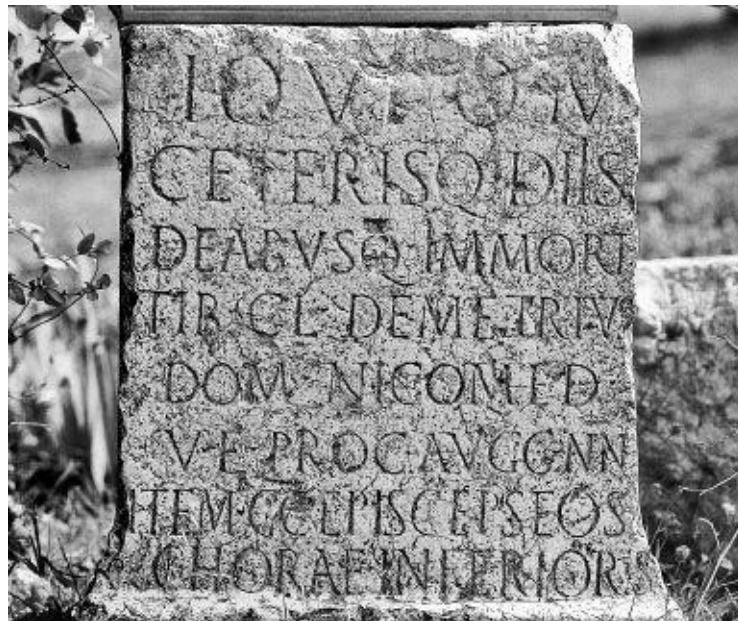 CETERISQ DIIS
DEABVSQ IMMORT
TIB CL DEMETRIVS
DOM NICOMED
V E PROC AVGG NN
ITEM CC EPISCEPSEOS
CHORAE INFERIORIS